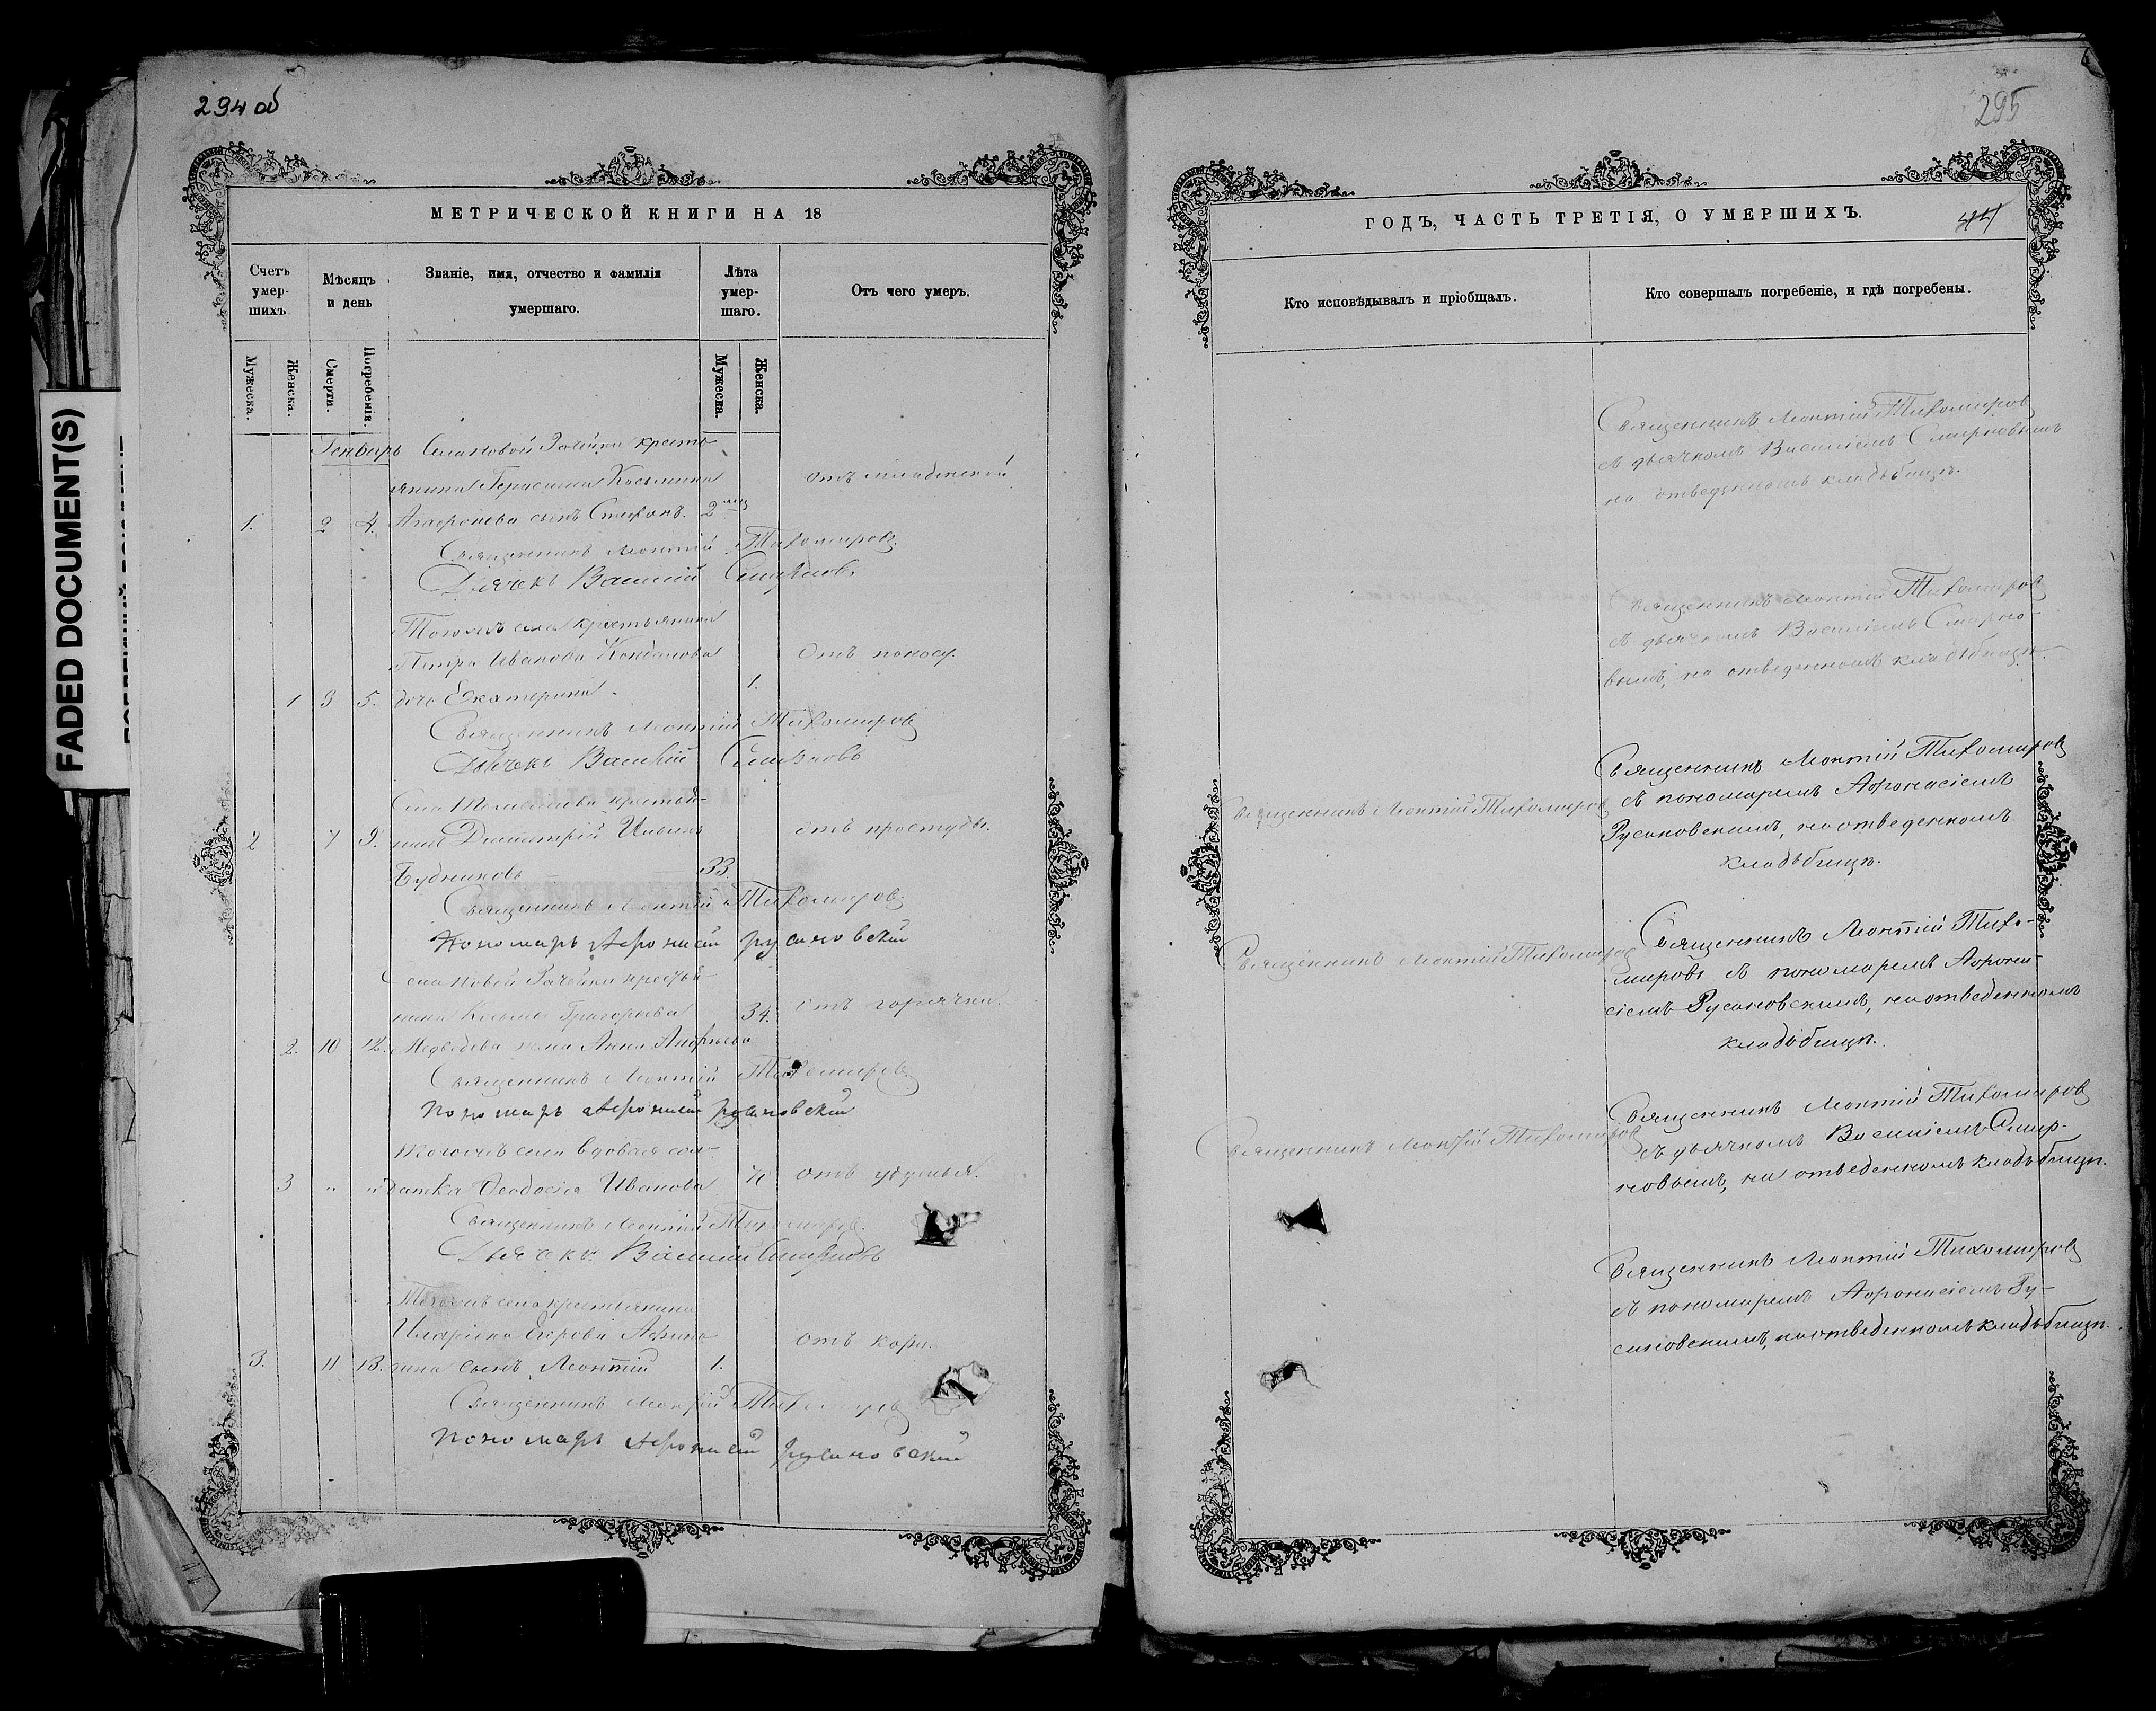 294 об
МЕТРИЧЕСКОЙ КНИГИ НА 18
Счетъ умер- шихъ
Мѣсяцъ и день
Званіе, имя, отчество и фамилія умершаго.
Лѣта умер- шаго.
Отъ чего умеръ.
Мужеска.
Женска.
Смерти.
Погребенія.
Мужеска.
Женска.
Генварь Села Новой Рачейки кресть
янина Герасима Косьмина отъ младенской
1. 2 4. Агафонова сынъ Стефанъ. 2 мѣс
Священникъ Леонтій Тихомировъ
Дьячекъ Василій Смирновъ
Тогожъ села крестьянина
Петра Иванова Отъ поносу.
1 3 5. дочь Екатерина. 1.
Священникъ Леонтій Тихомировъ
Дьячекъ Василій Смирновъ
Села крестья-
2 7 9. нинъ Димитрій отъ простуды.
Будниковъ 33.
Священникъ Леонтій Тихомировъ
Пономарь Афонасій Русановский
Села Новой Рачейки крестья-
нина Косьмы Григорьева 34. отъ горячки.
2. 10 12. Медвѣдева жена Анна Андреева
Священникъ Леонтій Тихомировъ
Пономарь Афонасий Русановский
Тогожъ села вдовая сол-
3 " " датка Ѳеодосія Иванова отъ удушья.
Священникъ Леонтій Тихомировъ.
Дьячекъ Василий Смирновъ
Тогожъ села крестьянина
Илларіона Егорова отъ кори.
3. 11 13. сынъ Леонтій 1.
Священникъ Леонтій Тихомировъ
Пономарь Афонасий Русановский
295
ГОДЪ, ЧАСТЬ ТРЕТІЯ, О УМЕРШИХЪ.
44
Кто исповѣдывалъ и пріобщалъ.
Кто совершалъ погребеніе, и гдѣ погребены.
Священникъ Леонтій Тихомировъ
съ дьячкомъ Василіемъ Смирновымъ
на отведенномъ кладьбищѣ.
Священникъ Леонтій Тихомировъ
съ дьячкомъ Василіемъ Смирно-
вымъ, на отведенномъ кладьбищѣ.
Священникъ Леонтій Тихомировъ
Священникъ Леонтій Тихомировъ
съ пономаремъ Афонасіемъ
Русановскимъ, на отведенномъ
кладьбищѣ.
Священникъ Леонтій Тихомировъ
Священникъ Леонтій Тихо-
мировъ съ пономаремъ Афона-
сіемъ Русановскимъ, на отведенномъ
кладьбищѣ.
Священникъ Леонтій Тихомировъ
Священникъ Леонтій Тихомировъ
съ дьячкомъ Василіемъ Смир-
новымъ, на отведенномъ кладьбищѣ.
Священникъ Леонтій Тихомировъ
съ пономаремъ Афонасіемъ Ру-
сановскимъ, на отведенномъ кладьбищѣ.
FADED DOCUMENT(S)